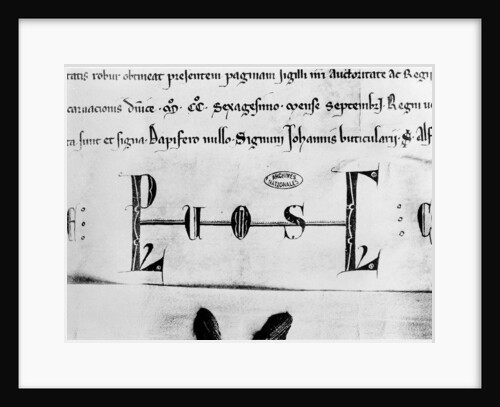 tatis robur obtineat presentem paginam sigilli nr̄i Auctoritate ac Regii
carnacionis dn̄ice · Mͦ · CCͦ · sexagesimo · mense Septembrj. Regni u
ta sunt et signa. Dapifero nullo. Signum Johannis buticularii. S. Alf
ARCHIVES
NATIONALES